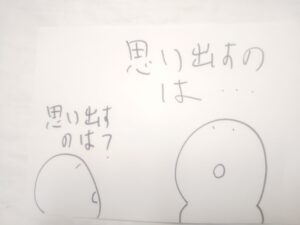 思い出すの
は…
思い出す
のは？